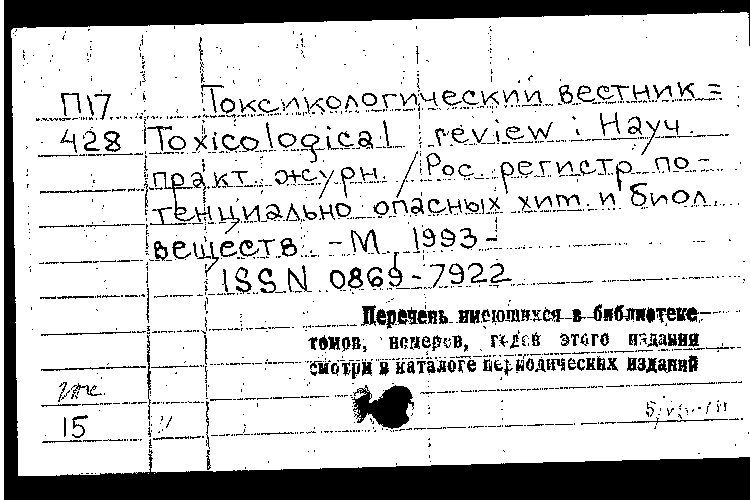 П17 Токсикологический вестник =
428 Toxicological review : Науч.
практ. журн. / Рос. регистр по-
тенциально опасных хим. и биол.
веществ. - М., 1993-
ISSN 0869-7922
Перечень имеющихся в библиотеке
томов, номеров, годов этого издания
смотри в каталоге периодических изданий
15